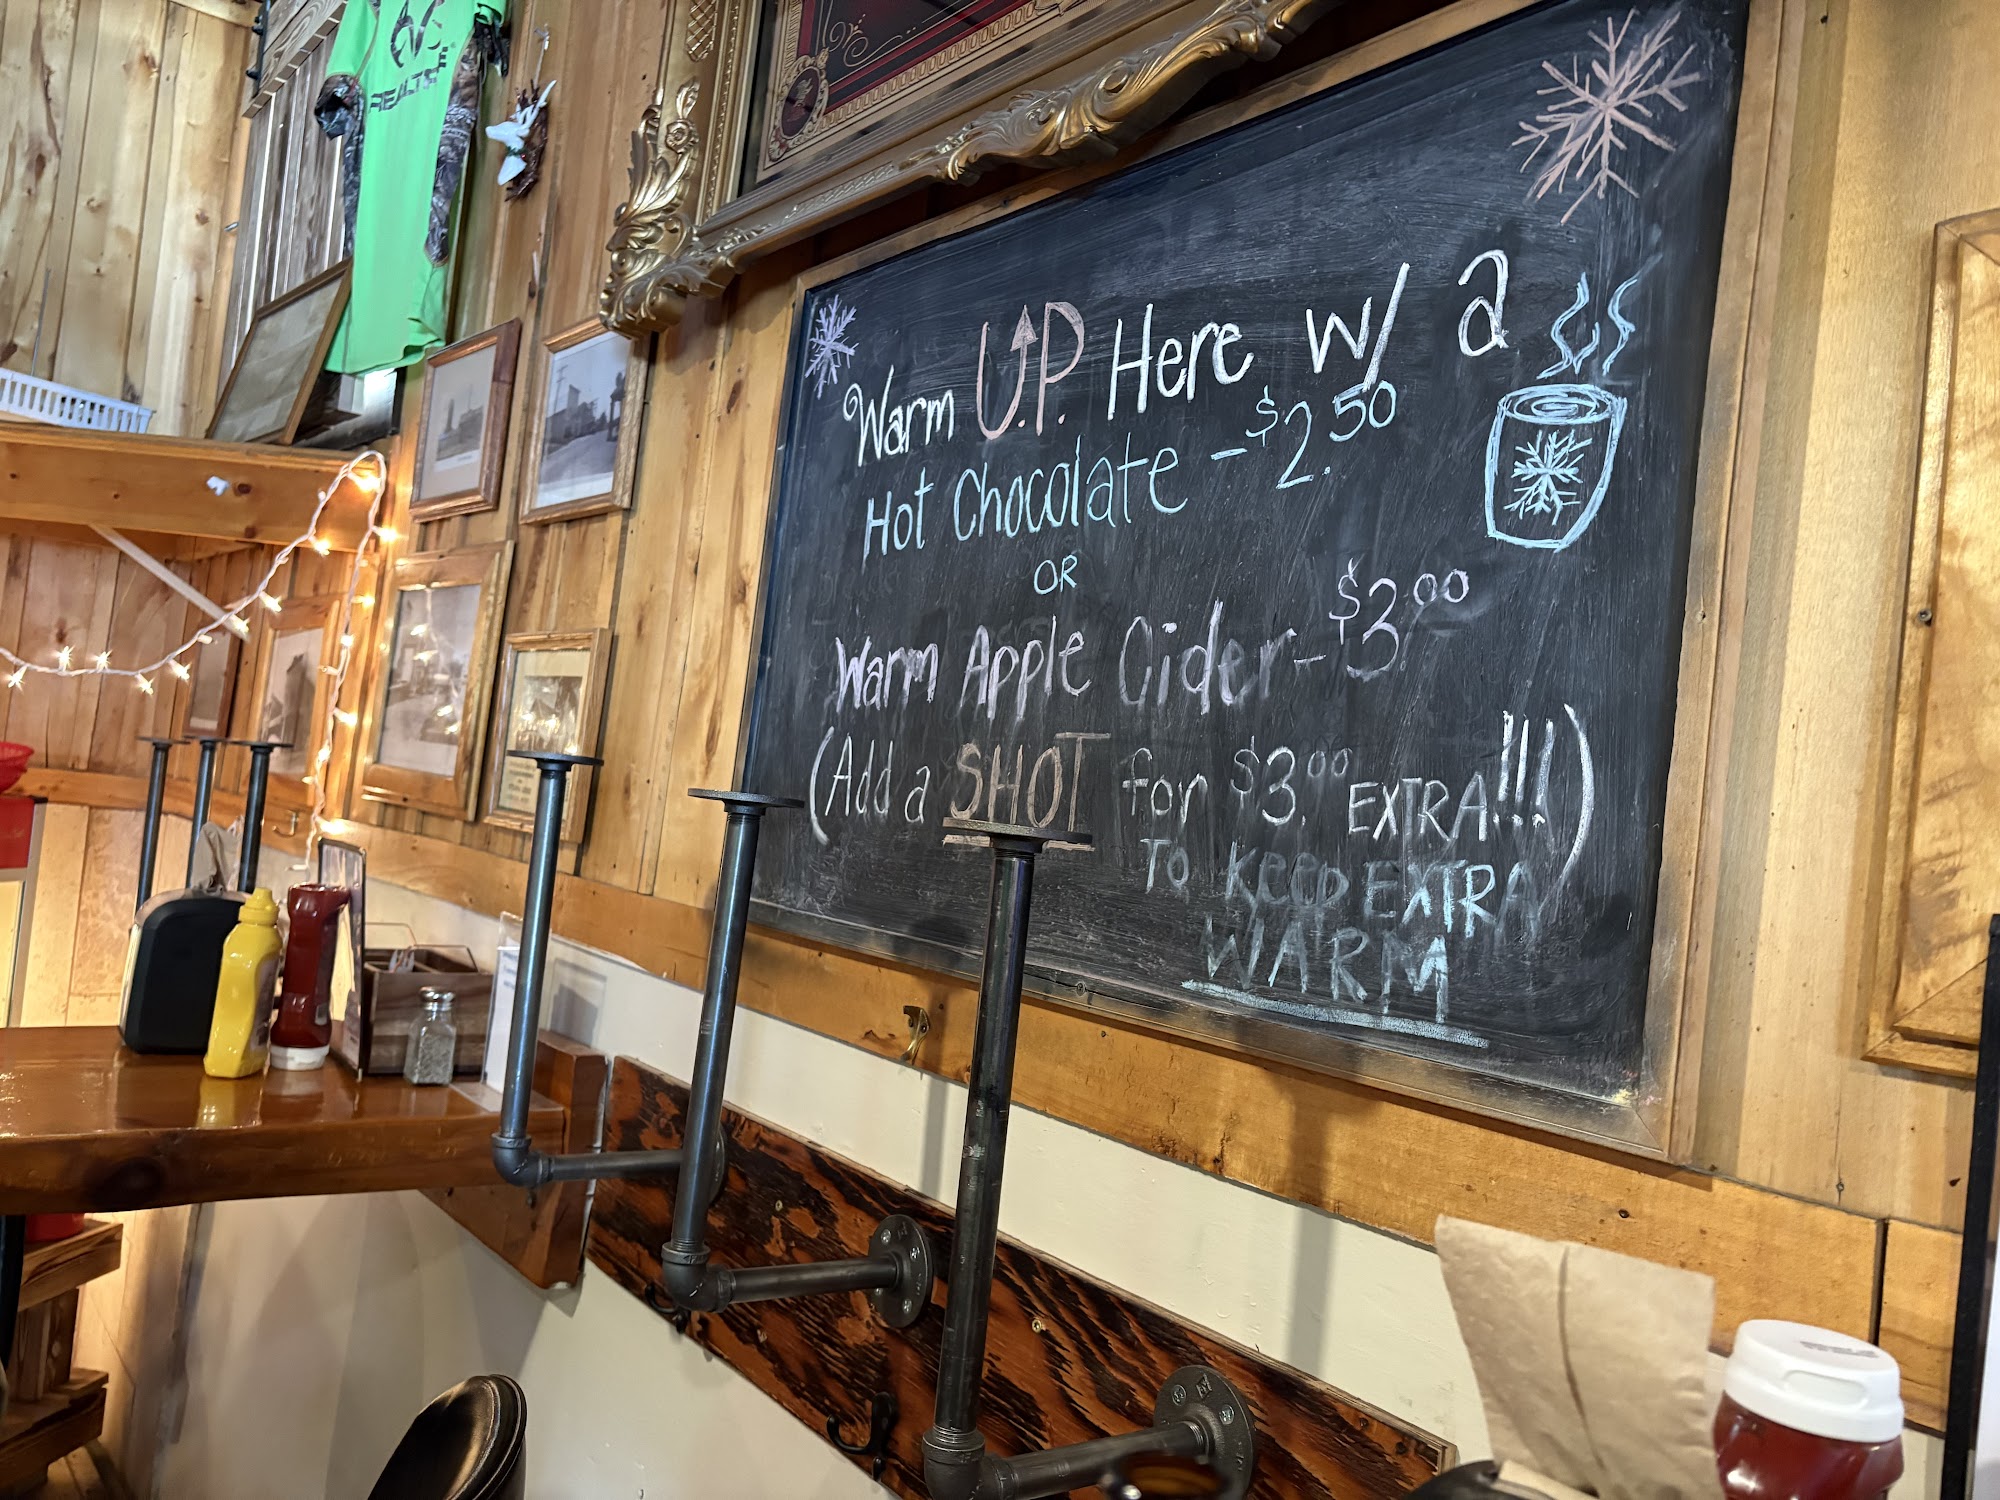 REALTREE
Warm U.P. Here w/ a
Hot Chocolate - $2.50
OR
Warm Apple Cider - $3.00
(Add a SHOT for $3.00 EXTRA!!!)
To Keep EXTRA
WARM